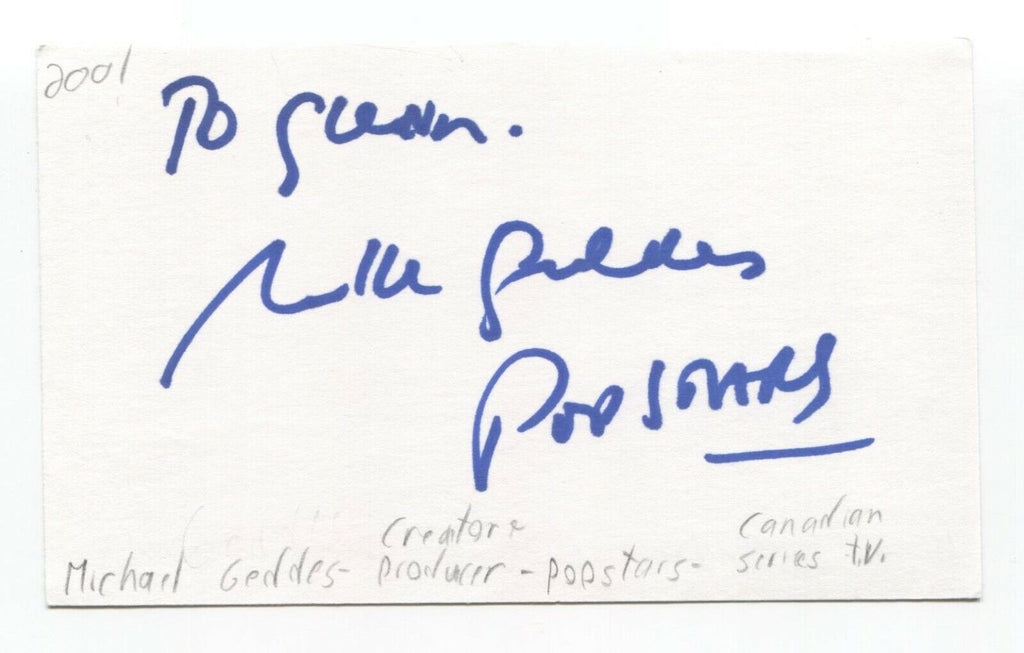 2001
To Glenn.
Mike Geddes
POPSTARS
Creator &
Canadian
Michael Geddes- Producer - Popstars- series t.v.